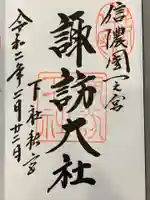 信濃國一之宮
諏訪大社
下社秋宮
令和二年二月廿二日